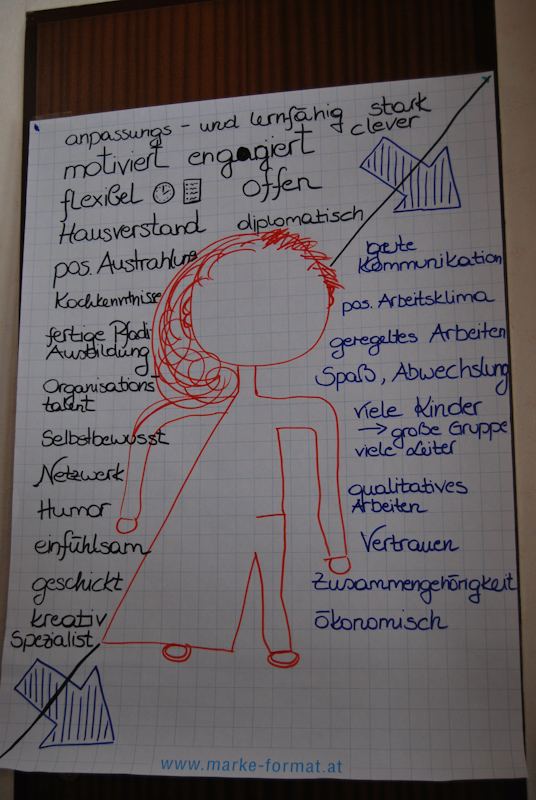 anpassungs- und lernfähig stark
clever
motiviert engagiert
flexibel offen
Hausverstand diplomatisch
pos. Austrahlung
Kochkenntnisse
fertige Pfadi
Ausbildung
Organisations-
talent
Selbstbewusst
Netzwerk
Humor
einfühlsam
geschickt
kreativ
Spezialist
gute
Kommunikation
pos. Arbeitsklima
geregeltes Arbeiten
Spaß, Abwechslung
viele Kinder
→ große Gruppe
viele Leiter
qualitatives
Arbeiten
Vertrauen
Zusammengehörigkeit
ökonomisch
www.marke-format.at